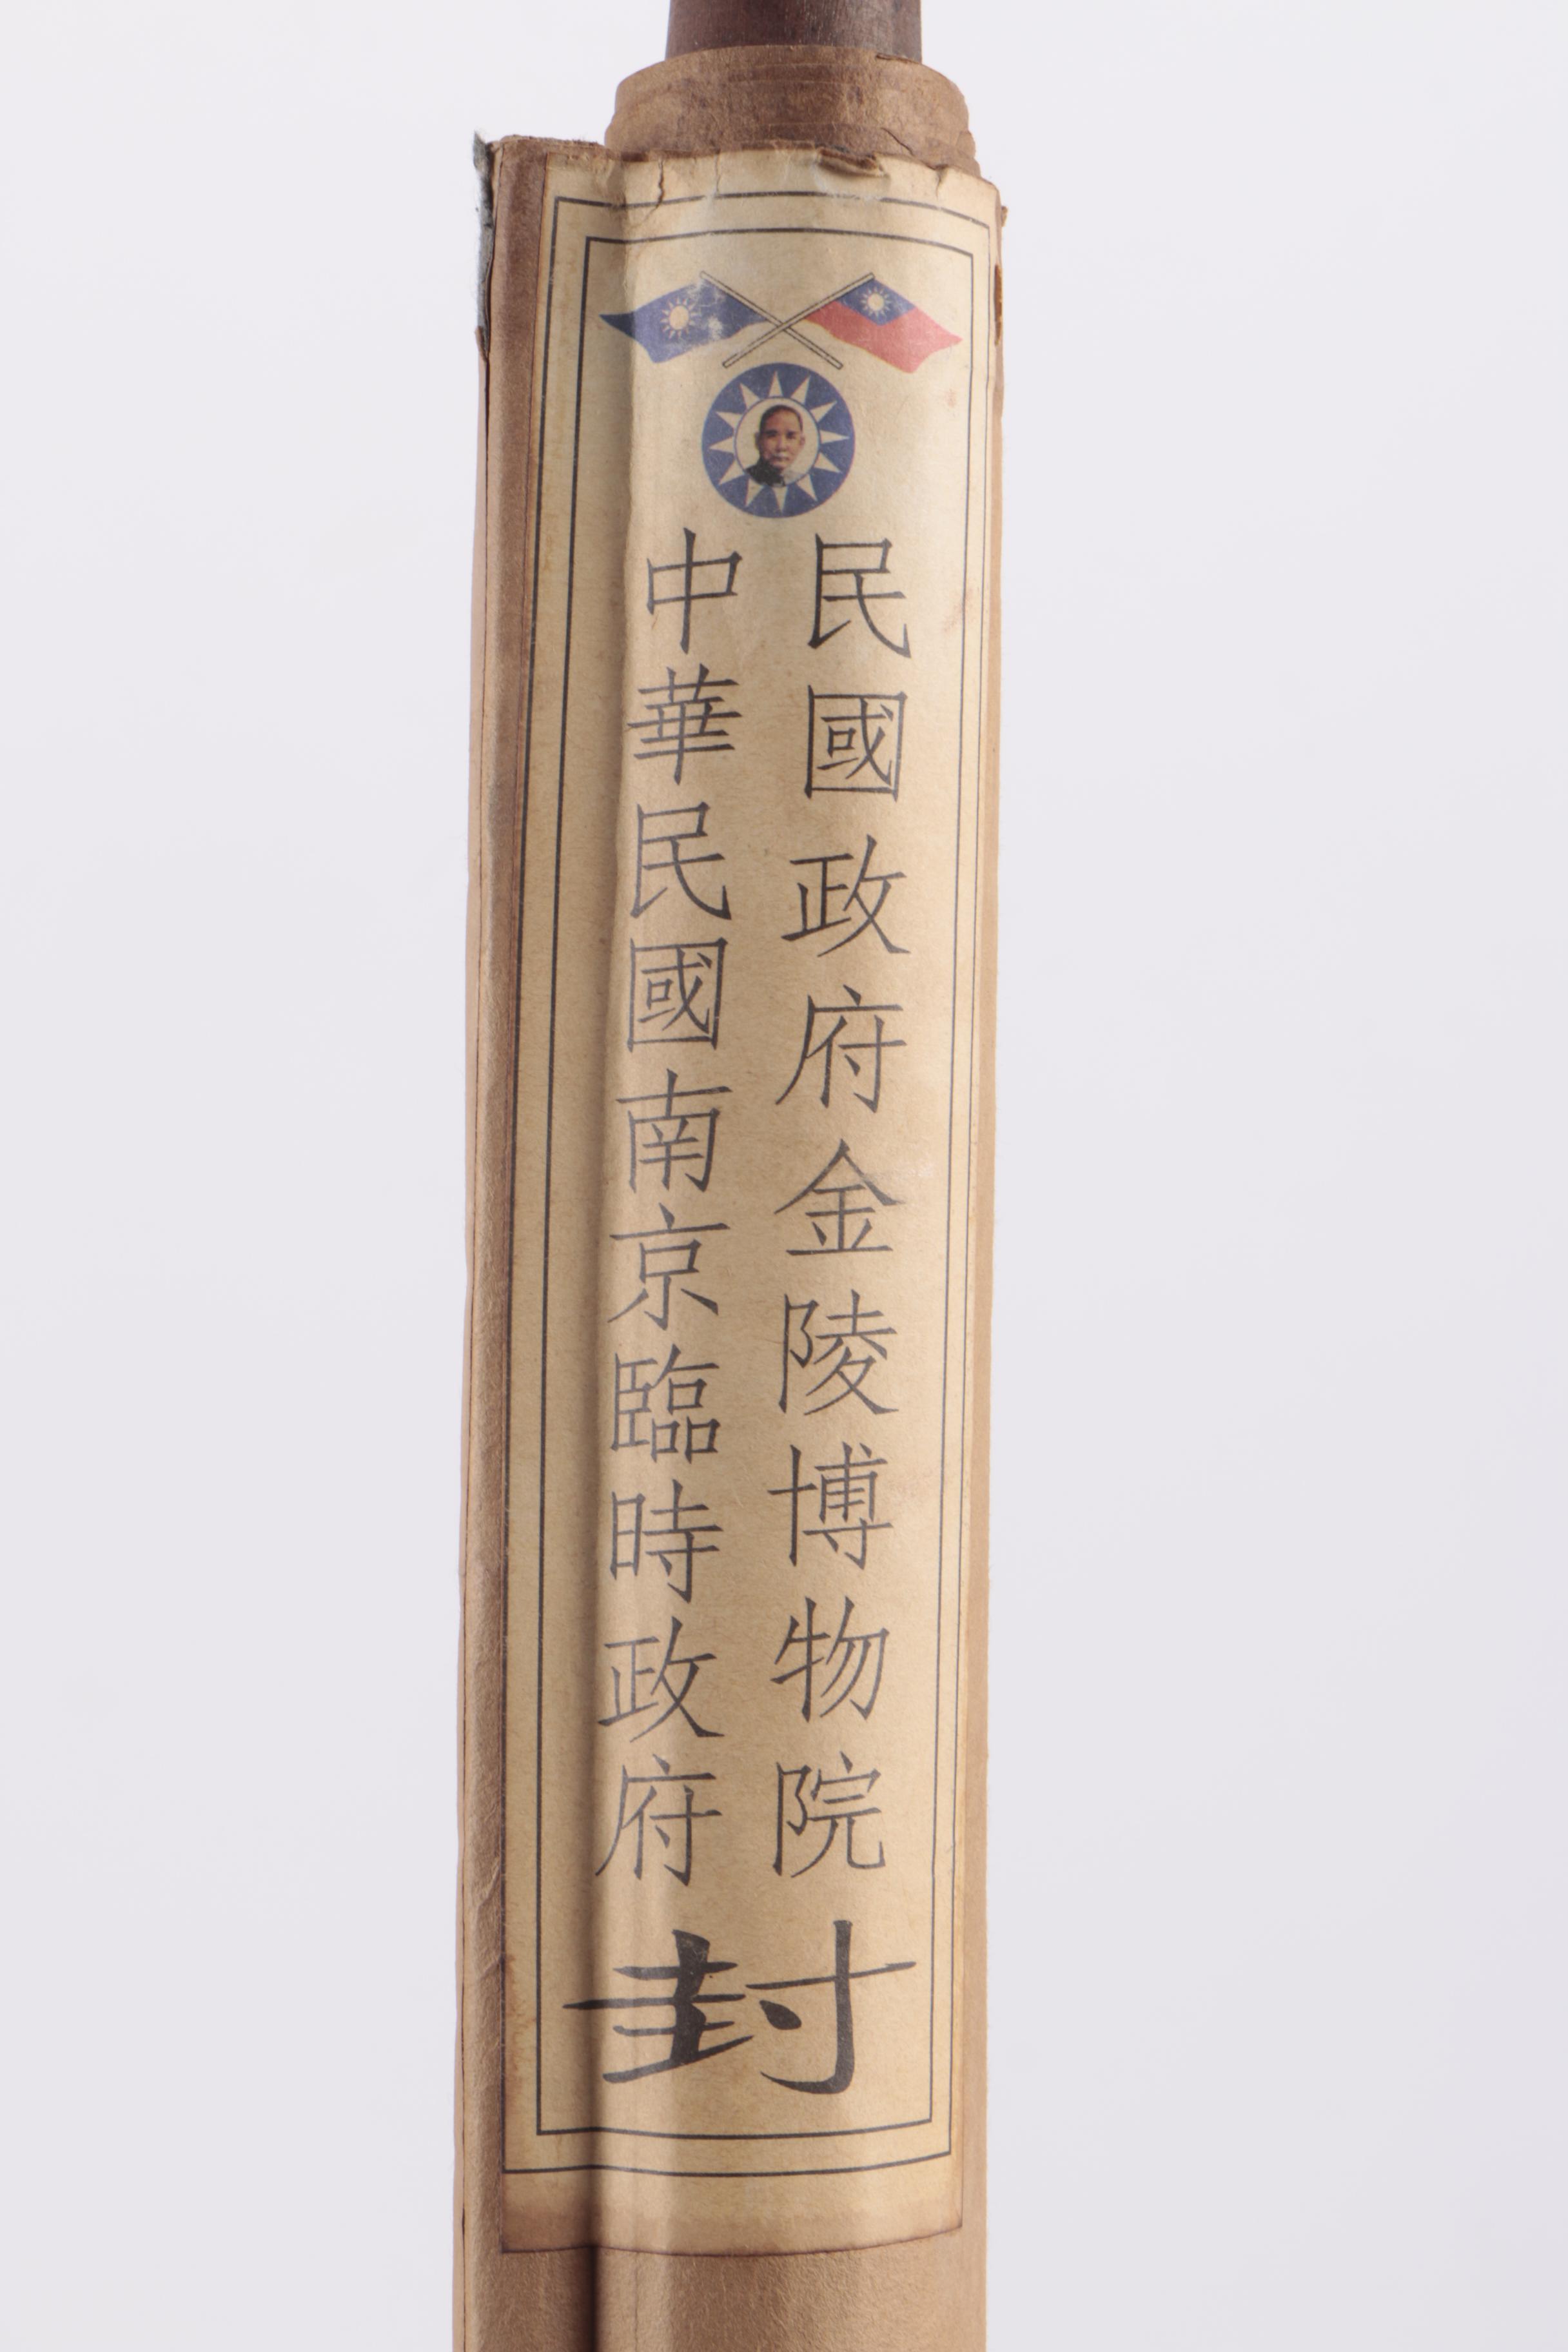 民國政府金陵博物院
中華民國南京臨時政府
封